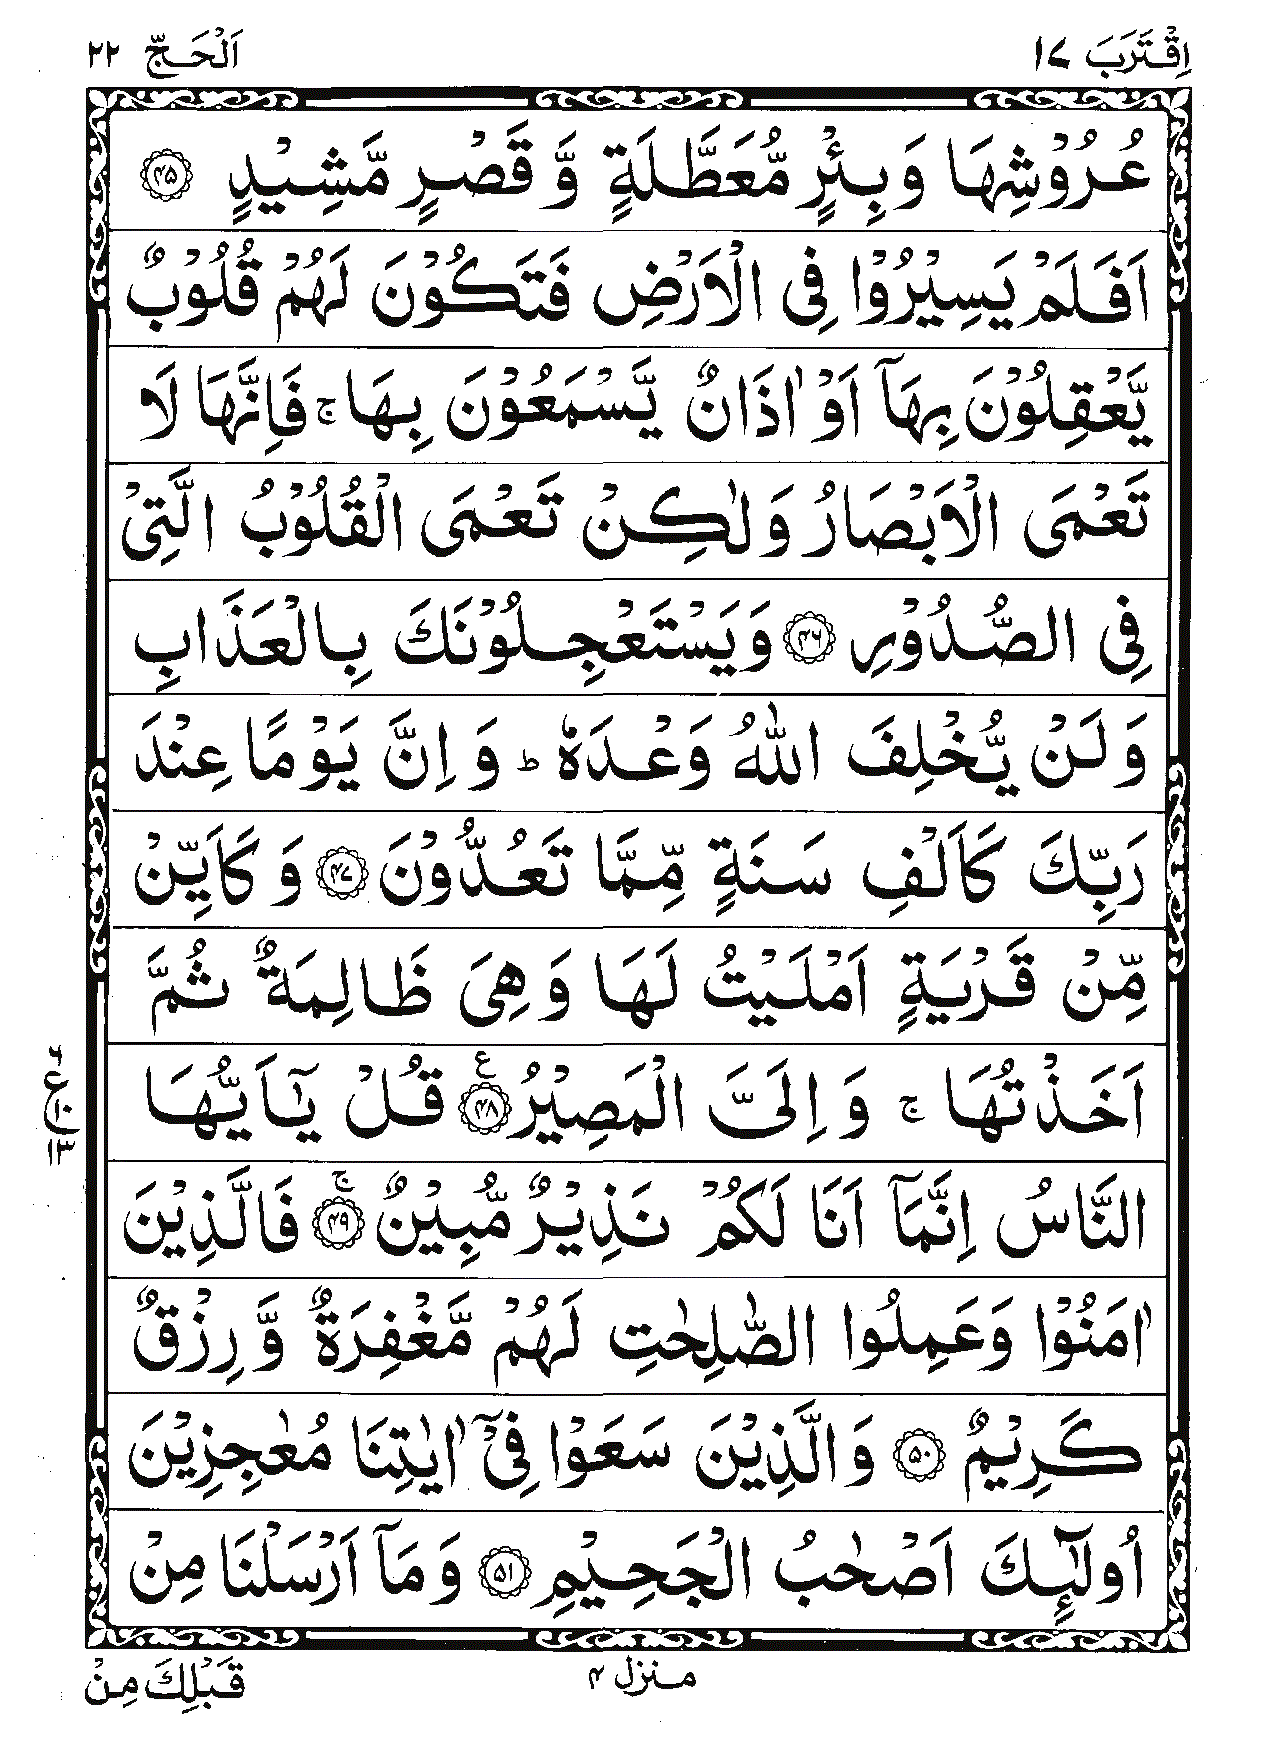 اِقْتَرَبَ ١٧
اَلْحَجّ ٢٢
عُرُوْشِهَا وَبِئْرٍ مُّعَطَّلَةٍ وَّ قَصْرٍ مَّشِيْدٍ ۝٤٥
اَفَلَمْ يَسِيْرُوْا فِى الْاَرْضِ فَتَكُوْنَ لَهُمْ قُلُوْبٌ
يَّعْقِلُوْنَ بِهَآ اَوْ اٰذَانٌ يَّسْمَعُوْنَ بِهَا ج فَاِنَّهَا لَا
تَعْمَى الْاَبْصَارُ وَلٰكِنْ تَعْمَى الْقُلُوْبُ الَّتِىْ
فِى الصُّدُوْرِ ۝٤٦ وَيَسْتَعْجِلُوْنَكَ بِالْعَذَابِ
وَلَنْ يُّخْلِفَ اللّٰهُ وَعْدَهٗ ط وَ اِنَّ يَوْمًا عِنْدَ
رَبِّكَ كَاَلْفِ سَنَةٍ مِّمَّا تَعُدُّوْنَ ۝٤٧ وَ كَاَيِّنْ
مِّنْ قَرْيَةٍ اَمْلَيْتُ لَهَا وَهِىَ ظَالِمَةٌ ثُمَّ
اَخَذْتُهَا ج وَ اِلَىَّ الْمَصِيْرُ ۝٤٨ ع قُلْ يٰٓاَيُّهَا
النَّاسُ اِنَّمَآ اَنَا لَكُمْ نَذِيْرٌ مُّبِيْنٌ ۝٤٩ ج فَالَّذِيْنَ
اٰمَنُوْا وَعَمِلُوا الصّٰلِحٰتِ لَهُمْ مَّغْفِرَةٌ وَّ رِزْقٌ
كَرِيْمٌ ۝٥٠ وَالَّذِيْنَ سَعَوْا فِىْٓ اٰيٰتِنَا مُعٰجِزِيْنَ
اُولٰٓئِكَ اَصْحٰبُ الْجَحِيْمِ ۝٥١ وَ مَآ اَرْسَلْنَا مِنْ
٢
ع
١٠
١٣
منزل ٤
قَبْلِكَ مِنْ